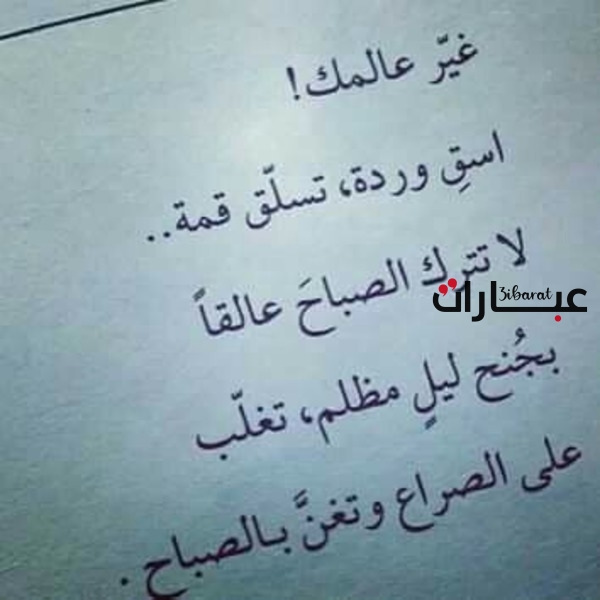 غيّر عالمك!
اسقِ وردة، تسلّق قمة..
لا تترك الصباحَ عالقاً
عبارات
3ibarat
بجُنح ليلٍ مظلم، تغلّب
على الصراع وتغنَّ بالصباح.